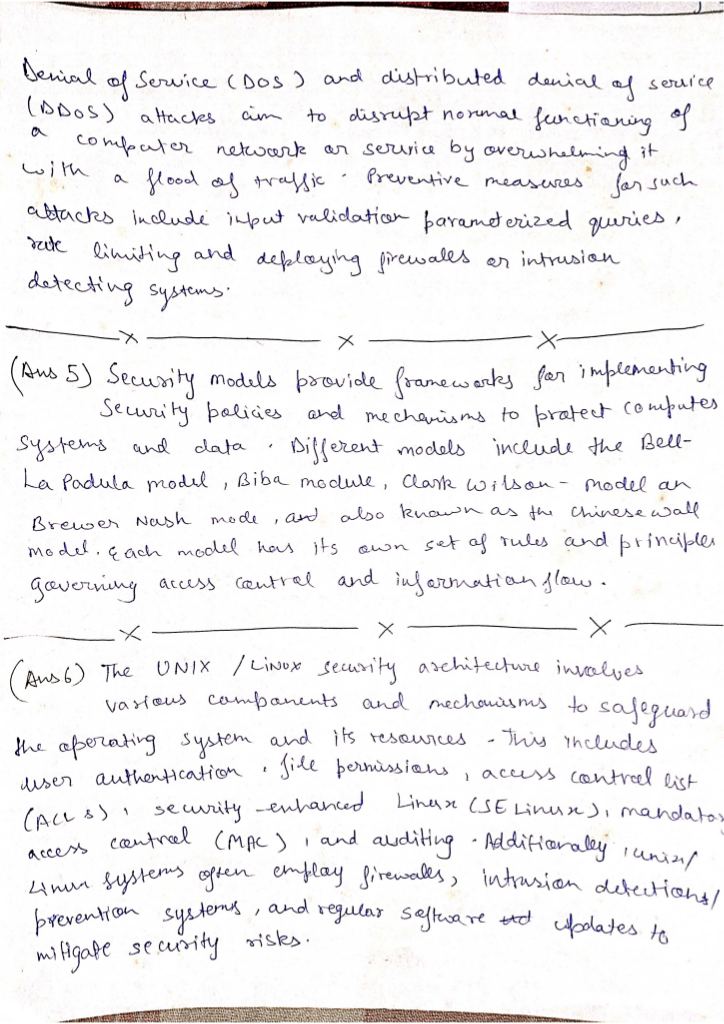 Denial of Service (DOS) and distributed denial of service
(DDOS) attacks aim to disrupt normal functioning of
a computer network or service by overwhelming it
with a flood of traffic. Preventive measures for such
attacks include input validation parameterized queries,
rate limiting and deploying firewalls or intrusion
detecting systems.
(Ans 5) Security models provide frameworks for implementing
Security policies and mechanisms to protect computes
systems and data. Different models include the Bell-
La Padula model, Biba module, Clark wilson - model an
Brewer Nash mode, and also known as the Chinese wall
model. Each model has its own set of rules and principles
governing access control and information flow.
(Ans 6) The UNIX / LINUX security architecture involves
various components and mechanisms to safeguard
the operating system and its resources. This includes
user authentication, file permissions, access control list
(ACL s), security-enhanced Linux (SE Linux), mandator
access control (MAC), and auditing. Additionally, unix/
Linux systems often employ firewalls, intrusion detections/
prevention systems, and regular software updates to
mitigate security risks.